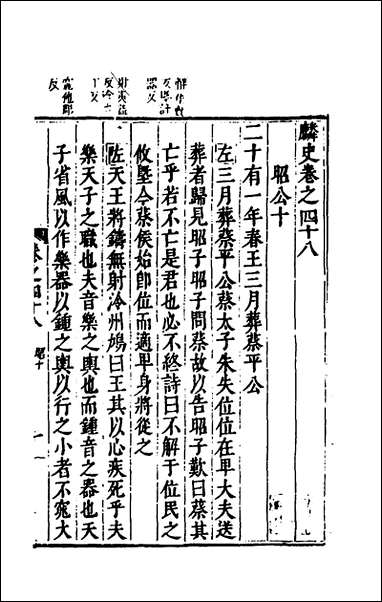 麟史卷之四十八
昭公十
二十有一年春王三月葬蔡平公
左三月葬蔡平公蔡太子朱失位位在卑大夫送
葬者歸見昭子昭子問蔡故以告昭子歎曰蔡其
亡乎若不亡是君也必不終詩曰不解于位民之
攸塈今蔡侯始即位而適卑身將從之
左天王將鑄無射泠州鳩曰王其以心疾死乎夫
樂天子之職也夫音樂之輿也而鍾音之器也天
子省風以作樂器以鍾之輿以行之小者不窕大
卷之四十八
昭十
一
解佳賣
反塈許
器反
丁反
窕他彫
反